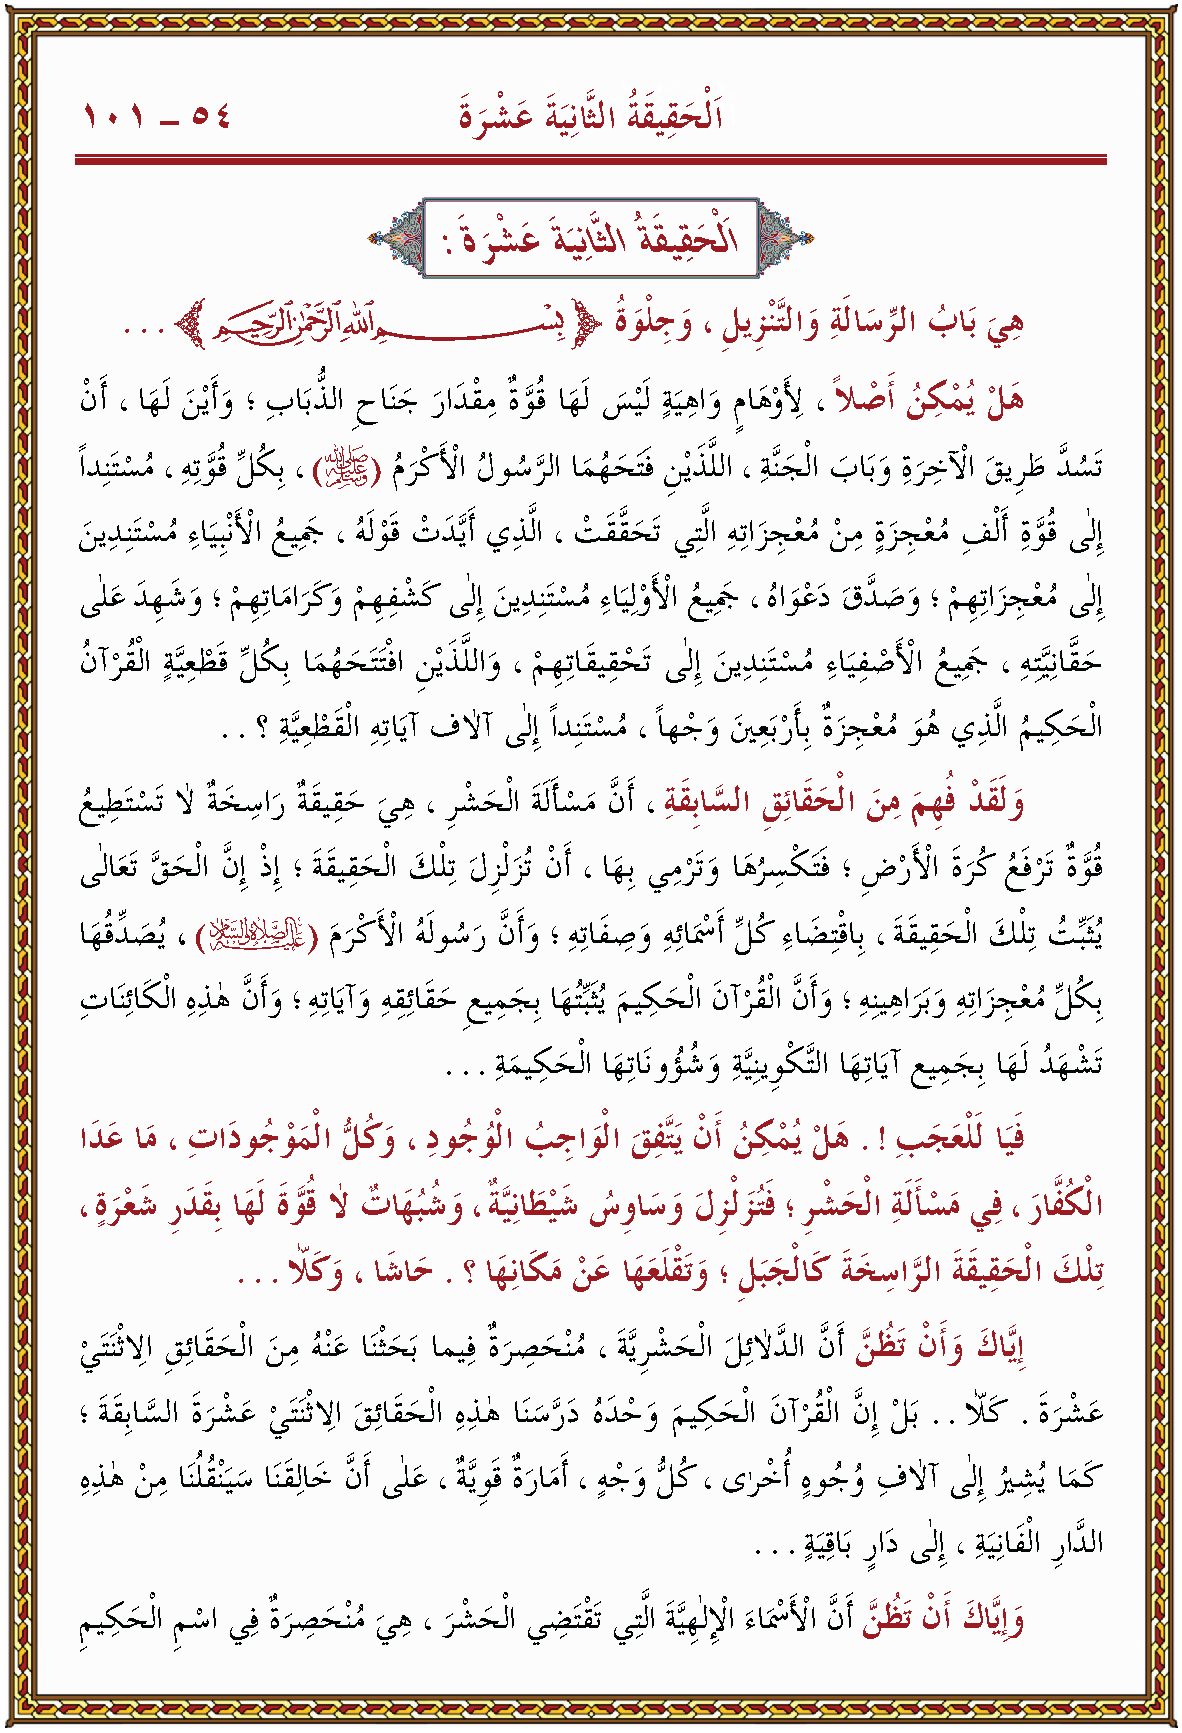 اَلْحَقِيقَةُ الثَّانِيَةَ عَشْرَةَ ٥٤ ـ ١٠١
اَلْحَقِيقَةُ الثَّانِيَةَ عَشْرَةَ :
هِيَ بَابُ الرِّسَالَةِ وَالتَّنْزِيلِ ، وَجِلْوَةُ ﴿ بِسْمِ اللهِ الرَّحْمٰنِ الرَّحِيمِ ﴾ . . .
هَلْ يُمْكِنُ أَصْلاً ، لِأَوْهَامٍ وَاهِيَةٍ لَيْسَ لَهَا قُوَّةٌ مِقْدَارَ جَنَاحِ الذُّبَابِ ؛ وَأَيْنَ لَهَا ، أَنْ
تَسُدَّ طَرِيقَ الْآخِرَةِ وَبَابَ الْجَنَّةِ ، اللَّذَيْنِ فَتَحَهُمَا الرَّسُولُ الْأَكْرَمُ (ﷺ) ، بِكُلِّ قُوَّتِهِ ، مُسْتَنِداً
إِلٰى قُوَّةِ أَلْفِ مُعْجِزَةٍ مِنْ مُعْجِزَاتِهِ الَّتِي تَحَقَّقَتْ ، الَّذِي أَيَّدَتْ قَوْلَهُ ، جَمِيعُ الْأَنْبِيَاءِ مُسْتَنِدِينَ
إِلٰى مُعْجِزَاتِهِمْ ؛ وَصَدَّقَ دَعْوَاهُ ، جَمِيعُ الْأَوْلِيَاءِ مُسْتَنِدِينَ إِلٰى كَشْفِهِمْ وَكَرَامَاتِهِمْ ؛ وَشَهِدَ عَلٰى
حَقَّانِيَّتِهِ ، جَمِيعُ الْأَصْفِيَاءِ مُسْتَنِدِينَ إِلٰى تَحْقِيقَاتِهِمْ ، وَاللَّذَيْنِ افْتَتَحَهُمَا بِكُلِّ قَطْعِيَّةٍ الْقُرْآنُ
الْحَكِيمُ الَّذِي هُوَ مُعْجِزَةٌ بِأَرْبَعِينَ وَجْهاً ، مُسْتَنِداً إِلٰى آلاٰفِ آيَاتِهِ الْقَطْعِيَّةِ ؟ . .
وَلَقَدْ فُهِمَ مِنَ الْحَقَائِقِ السَّابِقَةِ ، أَنَّ مَسْأَلَةَ الْحَشْرِ ، هِيَ حَقِيقَةٌ رَاسِخَةٌ لاٰ تَسْتَطِيعُ
قُوَّةٌ تَرْفَعُ كُرَةَ الْأَرْضِ ؛ فَتَكْسِرُهَا وَتَرْمِي بِهَا ، أَنْ تُزَلْزِلَ تِلْكَ الْحَقِيقَةَ ؛ إِذْ إِنَّ الْحَقَّ تَعَالٰى
يُثَبِّتُ تِلْكَ الْحَقِيقَةَ ، بِاقْتِضَاءِ كُلِّ أَسْمَائِهِ وَصِفَاتِهِ ؛ وَأَنَّ رَسُولَهُ الْأَكْرَمَ (عَلَيْهِ الصَّلاَةُ وَالسَّلاَمُ) ، يُصَدِّقُهَا
بِكُلِّ مُعْجِزَاتِهِ وَبَرَاهِينِهِ ؛ وَأَنَّ الْقُرْآنَ الْحَكِيمَ يُثَبِّتُهَا بِجَمِيعِ حَقَائِقِهِ وَآيَاتِهِ ؛ وَأَنَّ هٰذِهِ الْكَائِنَاتِ
تَشْهَدُ لَهَا بِجَمِيعِ آيَاتِهَا التَّكْوِينِيَّةِ وَشُؤُونَاتِهَا الْحَكِيمَةِ . . .
فَيَا لَلْعَجَبِ ! . هَلْ يُمْكِنُ أَنْ يَتَّفِقَ الْوَاجِبُ الْوُجُودِ ، وَكُلُّ الْمَوْجُودَاتِ ، مَا عَدَا
الْكُفَّارَ ، فِي مَسْأَلَةِ الْحَشْرِ ؛ فَتُزَلْزِلَ وَسَاوِسُ شَيْطَانِيَّةٌ ، وَشُبُهَاتٌ لاٰ قُوَّةَ لَهَا بِقَدَرِ شَعْرَةٍ ،
تِلْكَ الْحَقِيقَةَ الرَّاسِخَةَ كَالْجَبَلِ ؛ وَتَقْلَعَهَا عَنْ مَكَانِهَا ؟ . حَاشَا ، وَكَلاَّ . . .
إِيَّاكَ وَأَنْ تَظُنَّ أَنَّ الدَّلاٰئِلَ الْحَشْرِيَّةَ ، مُنْحَصِرَةٌ فِيمَا بَحَثْنَا عَنْهُ مِنَ الْحَقَائِقِ الاِثْنَتَيْ
عَشْرَةَ . كَلاَّ . . بَلْ إِنَّ الْقُرْآنَ الْحَكِيمَ وَحْدَهُ دَرَّسَنَا هٰذِهِ الْحَقَائِقَ الاِثْنَتَيْ عَشْرَةَ السَّابِقَةَ ؛
كَمَا يُشِيرُ إِلٰى آلاٰفِ وُجُوهٍ أُخْرٰى ، كُلُّ وَجْهٍ ، أَمَارَةٌ قَوِيَّةٌ ، عَلٰى أَنَّ خَالِقَنَا سَيَنْقُلُنَا مِنْ هٰذِهِ
الدَّارِ الْفَانِيَةِ ، إِلٰى دَارٍ بَاقِيَةٍ . . .
وَإِيَّاكَ أَنْ تَظُنَّ أَنَّ الْأَسْمَاءَ الْإِلٰهِيَّةَ الَّتِي تَقْتَضِي الْحَشْرَ ، هِيَ مُنْحَصِرَةٌ فِي اسْمِ الْحَكِيمِ